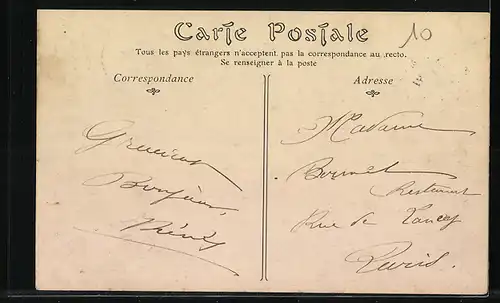 Carte Postale
10
Tous les pays étrangers n'acceptent pas la correspondance au recto.
Se renseigner à la poste
Correspondance
Adresse
Madame
Restaurant
Rue de Nancy
Paris
Bonjour